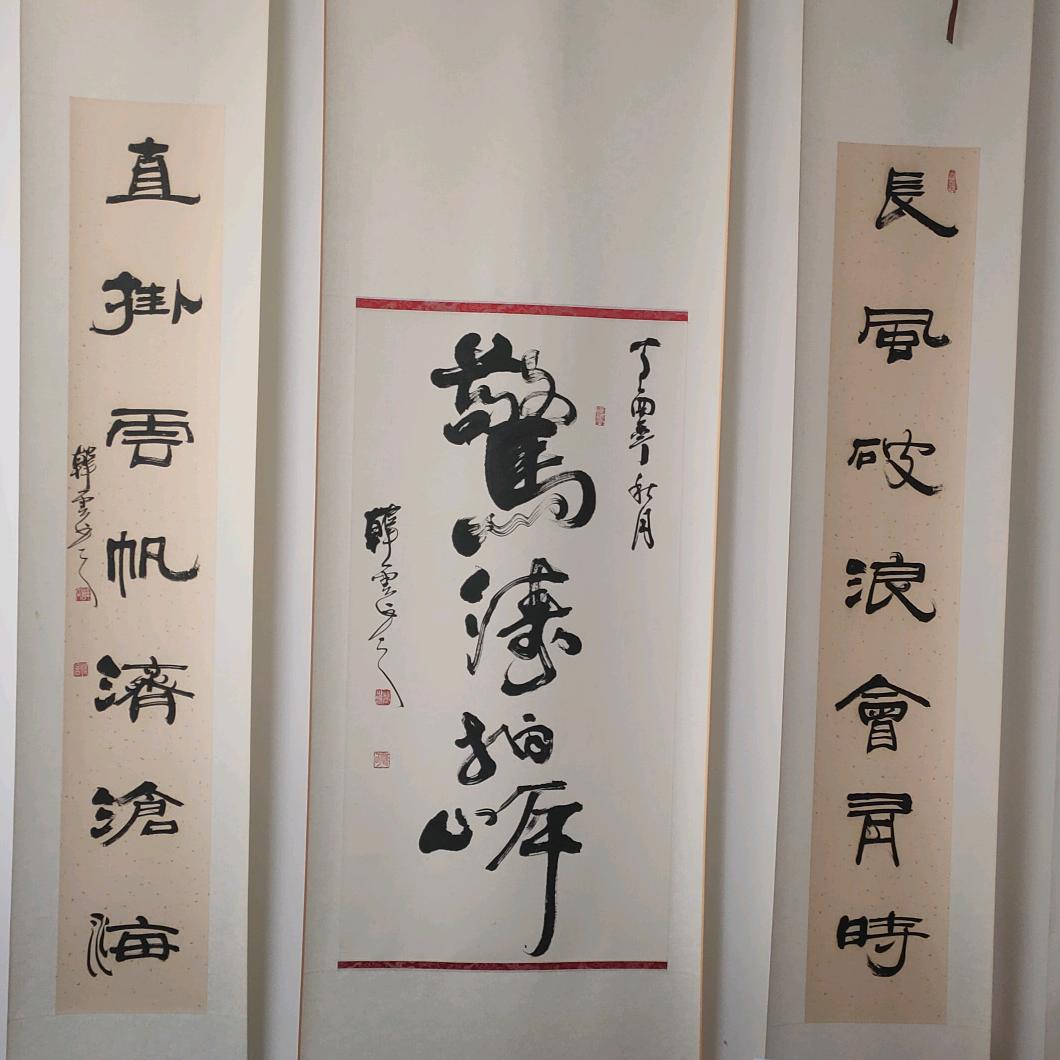 長風破浪會有時
丁酉年秋月
驚濤拍岸
韓雲
直掛雲帆濟滄海
韓雲